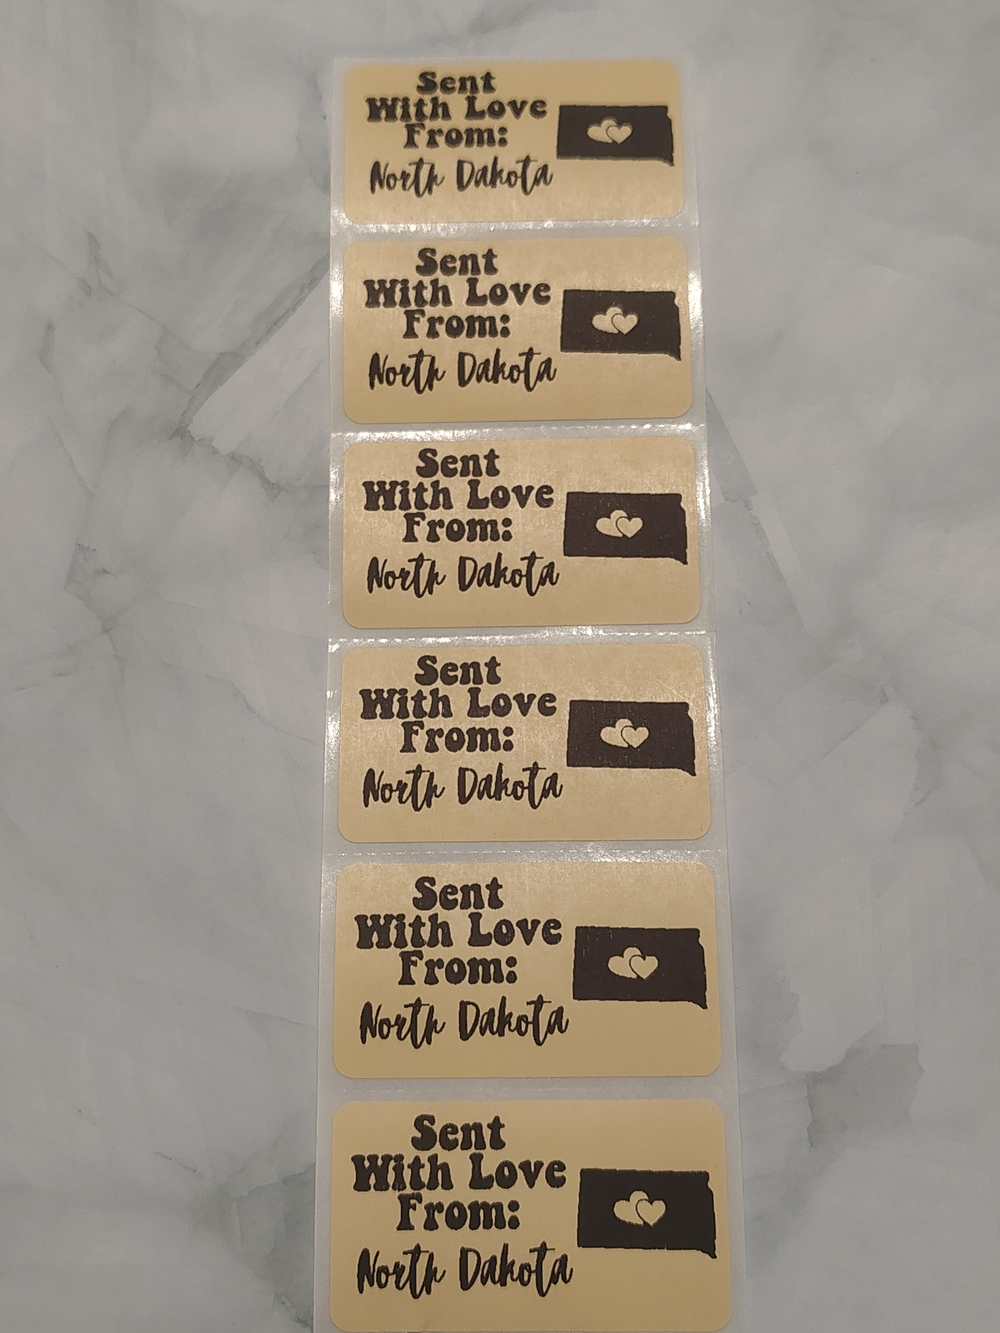 Sent
With Love
From:
North Dakota
Sent
With Love
From:
North Dakota
Sent
With Love
From:
North Dakota
Sent
With Love
From:
North Dakota
Sent
With Love
From:
North Dakota
Sent
With Love
From:
North Dakota